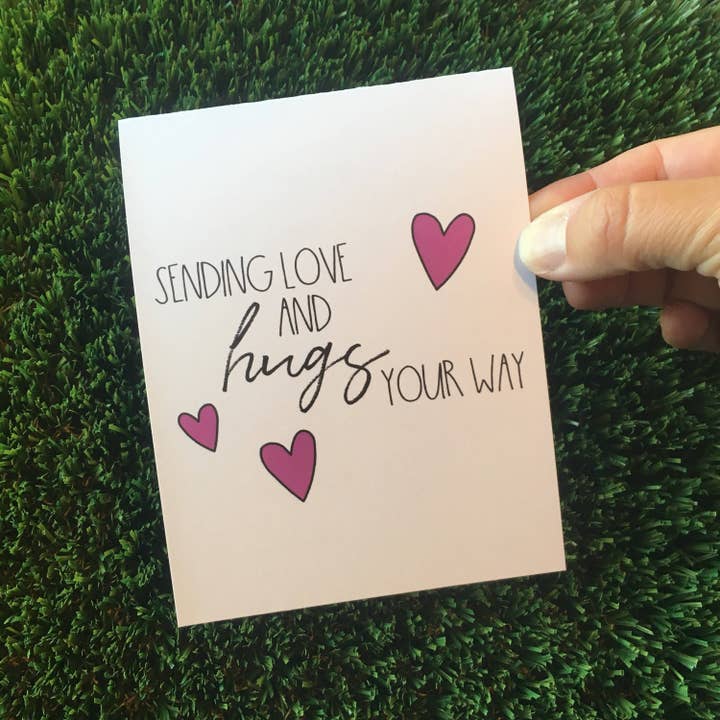 SENDING LOVE
AND
hugs YOUR WAY